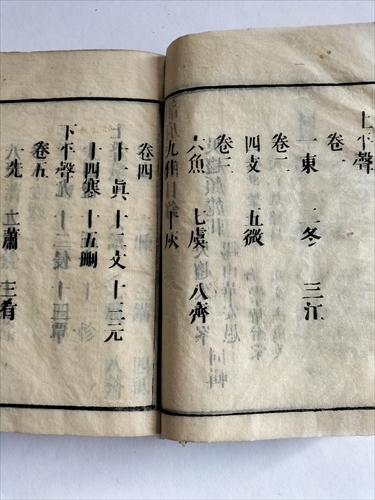 上平聲
卷一
一東 二冬 三江
卷二
四支 五微
卷三
六魚 七虞 八齊
九佳 十灰
卷四
十一眞 十二文 十三元
十四寒 十五刪
下平聲
卷五
一先 二蕭 三肴